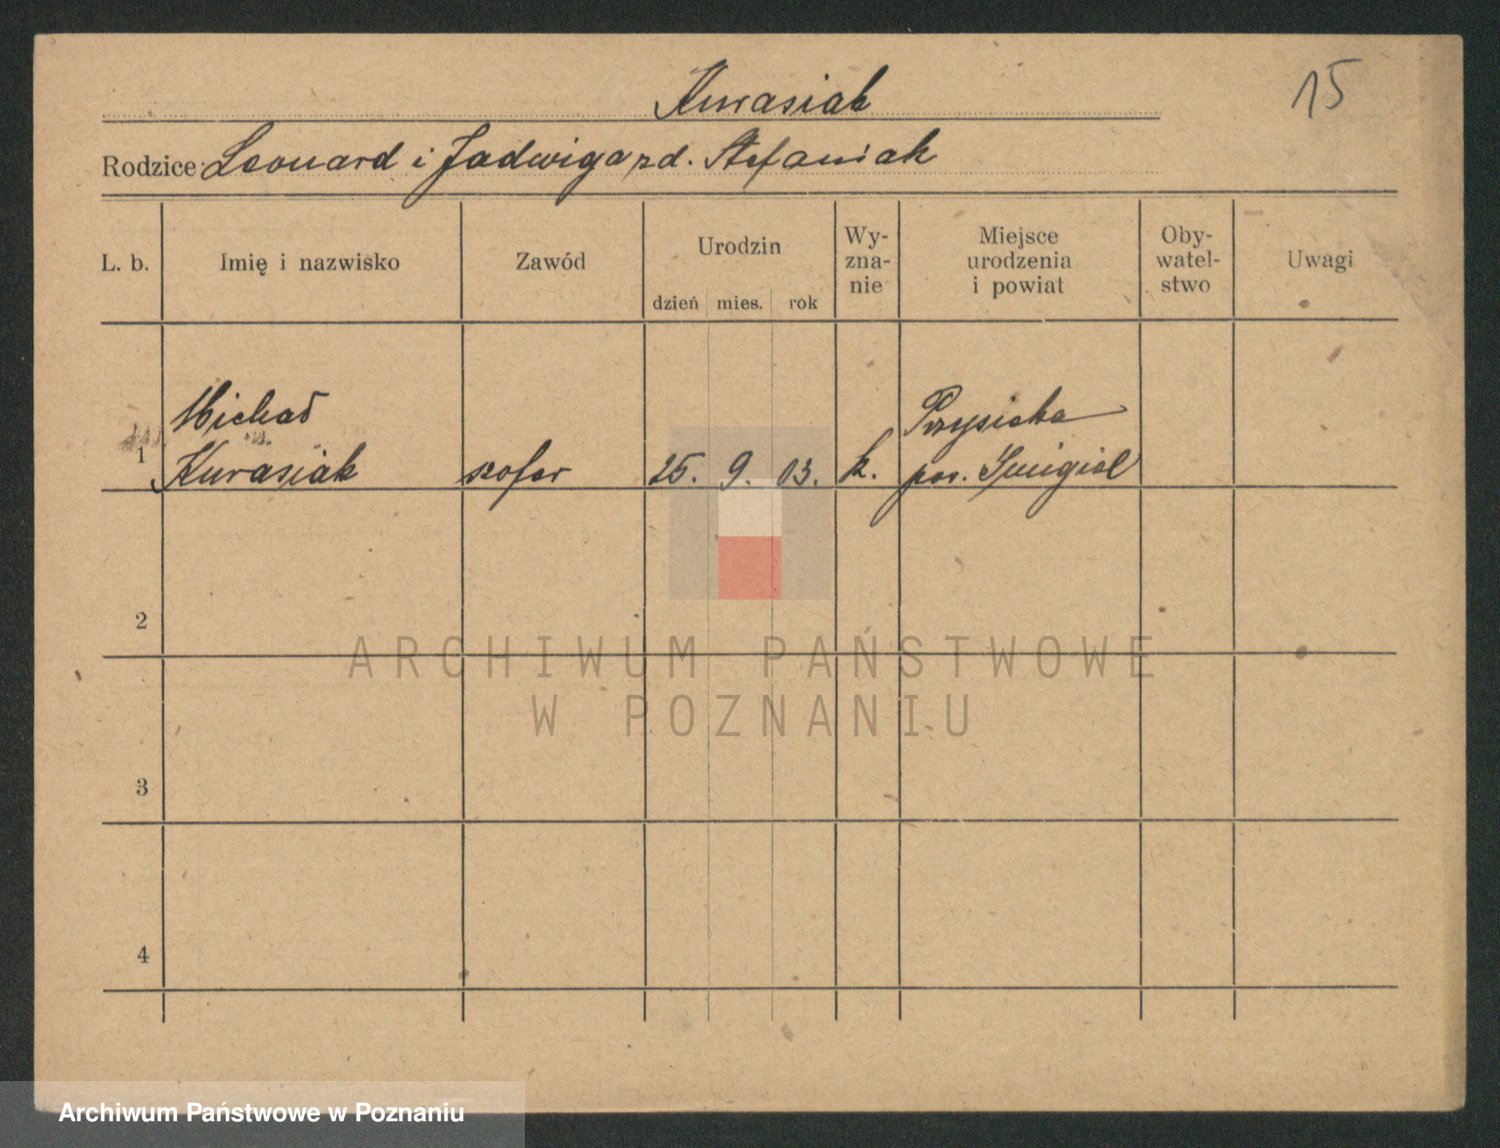 15
Kurasiak
Rodzice: Leonard i Jadwiga zd. Stefaniak
L. b.
Imię i nazwisko
Zawód
Urodzin
dzień mies. rok
Wy-
zna-
nie
Miejsce
urodzenia
i powiat
Oby-
watel-
stwo
Uwagi
1
Michał
Kurasiak
szofer
25. 9. 03.
k.
Przysieka
pow. Śmigiel
2
3
4
ARCHIWUM PAŃSTWOWE
W POZNANIU
Archiwum Państwowe w Poznaniu